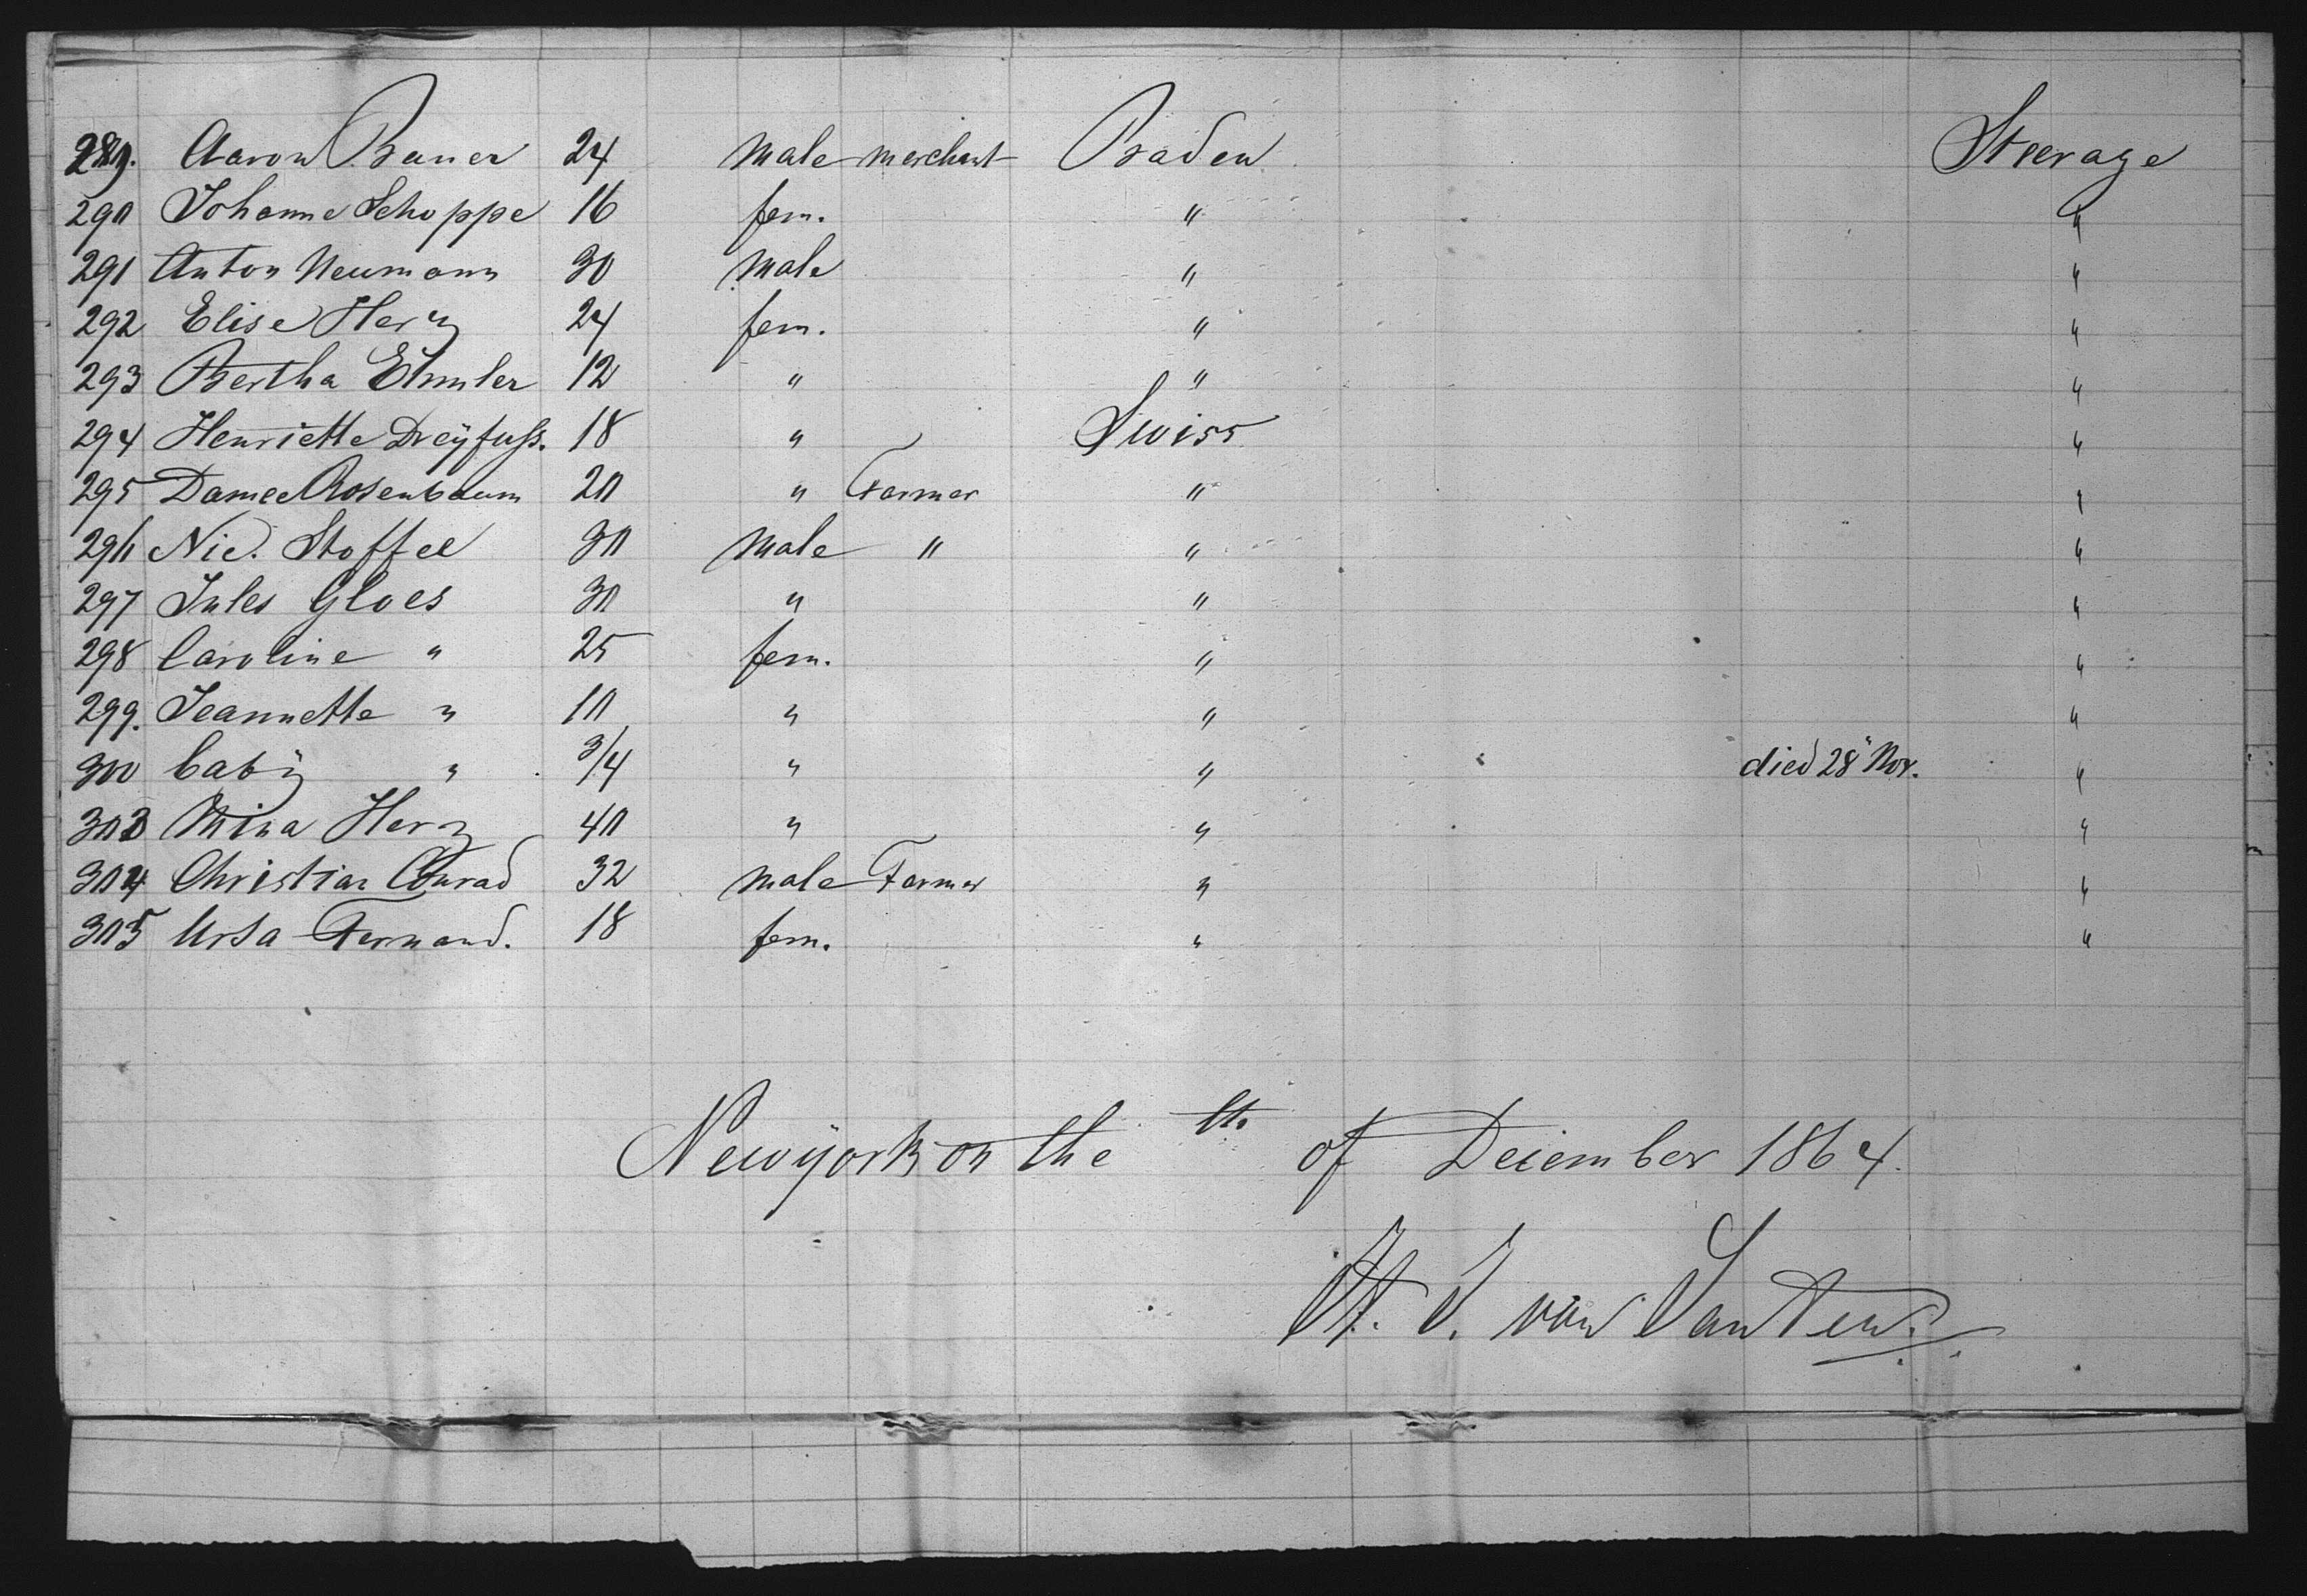 289. Aaron Bauer 24 male merchant Baden Steerage
290 Johanne Schoppe 16 fem. " "
291 Anton Neumann 30 male " "
292 Elise Herz 24 fem. " "
293 Bertha 12 " " "
294 Henriette Dreÿfuss. 18 " Swiss "
295 Rosenbaum 20 " Farmer " "
296 Nic. Stoffel 30 male " " "
297 Jules Gloes 30 " " "
298 Caroline " 25 fem. " "
299. Jeannette " 10 " " "
300 babÿ " 3/4 " " died 28" Nov. "
303 Mina Herz 40 " " "
304 Christian Conrad 32 male Farmer " "
305 Ursa Fernand. 18 fem. " "
Newÿork on the th. of December 1864.
van Santen.